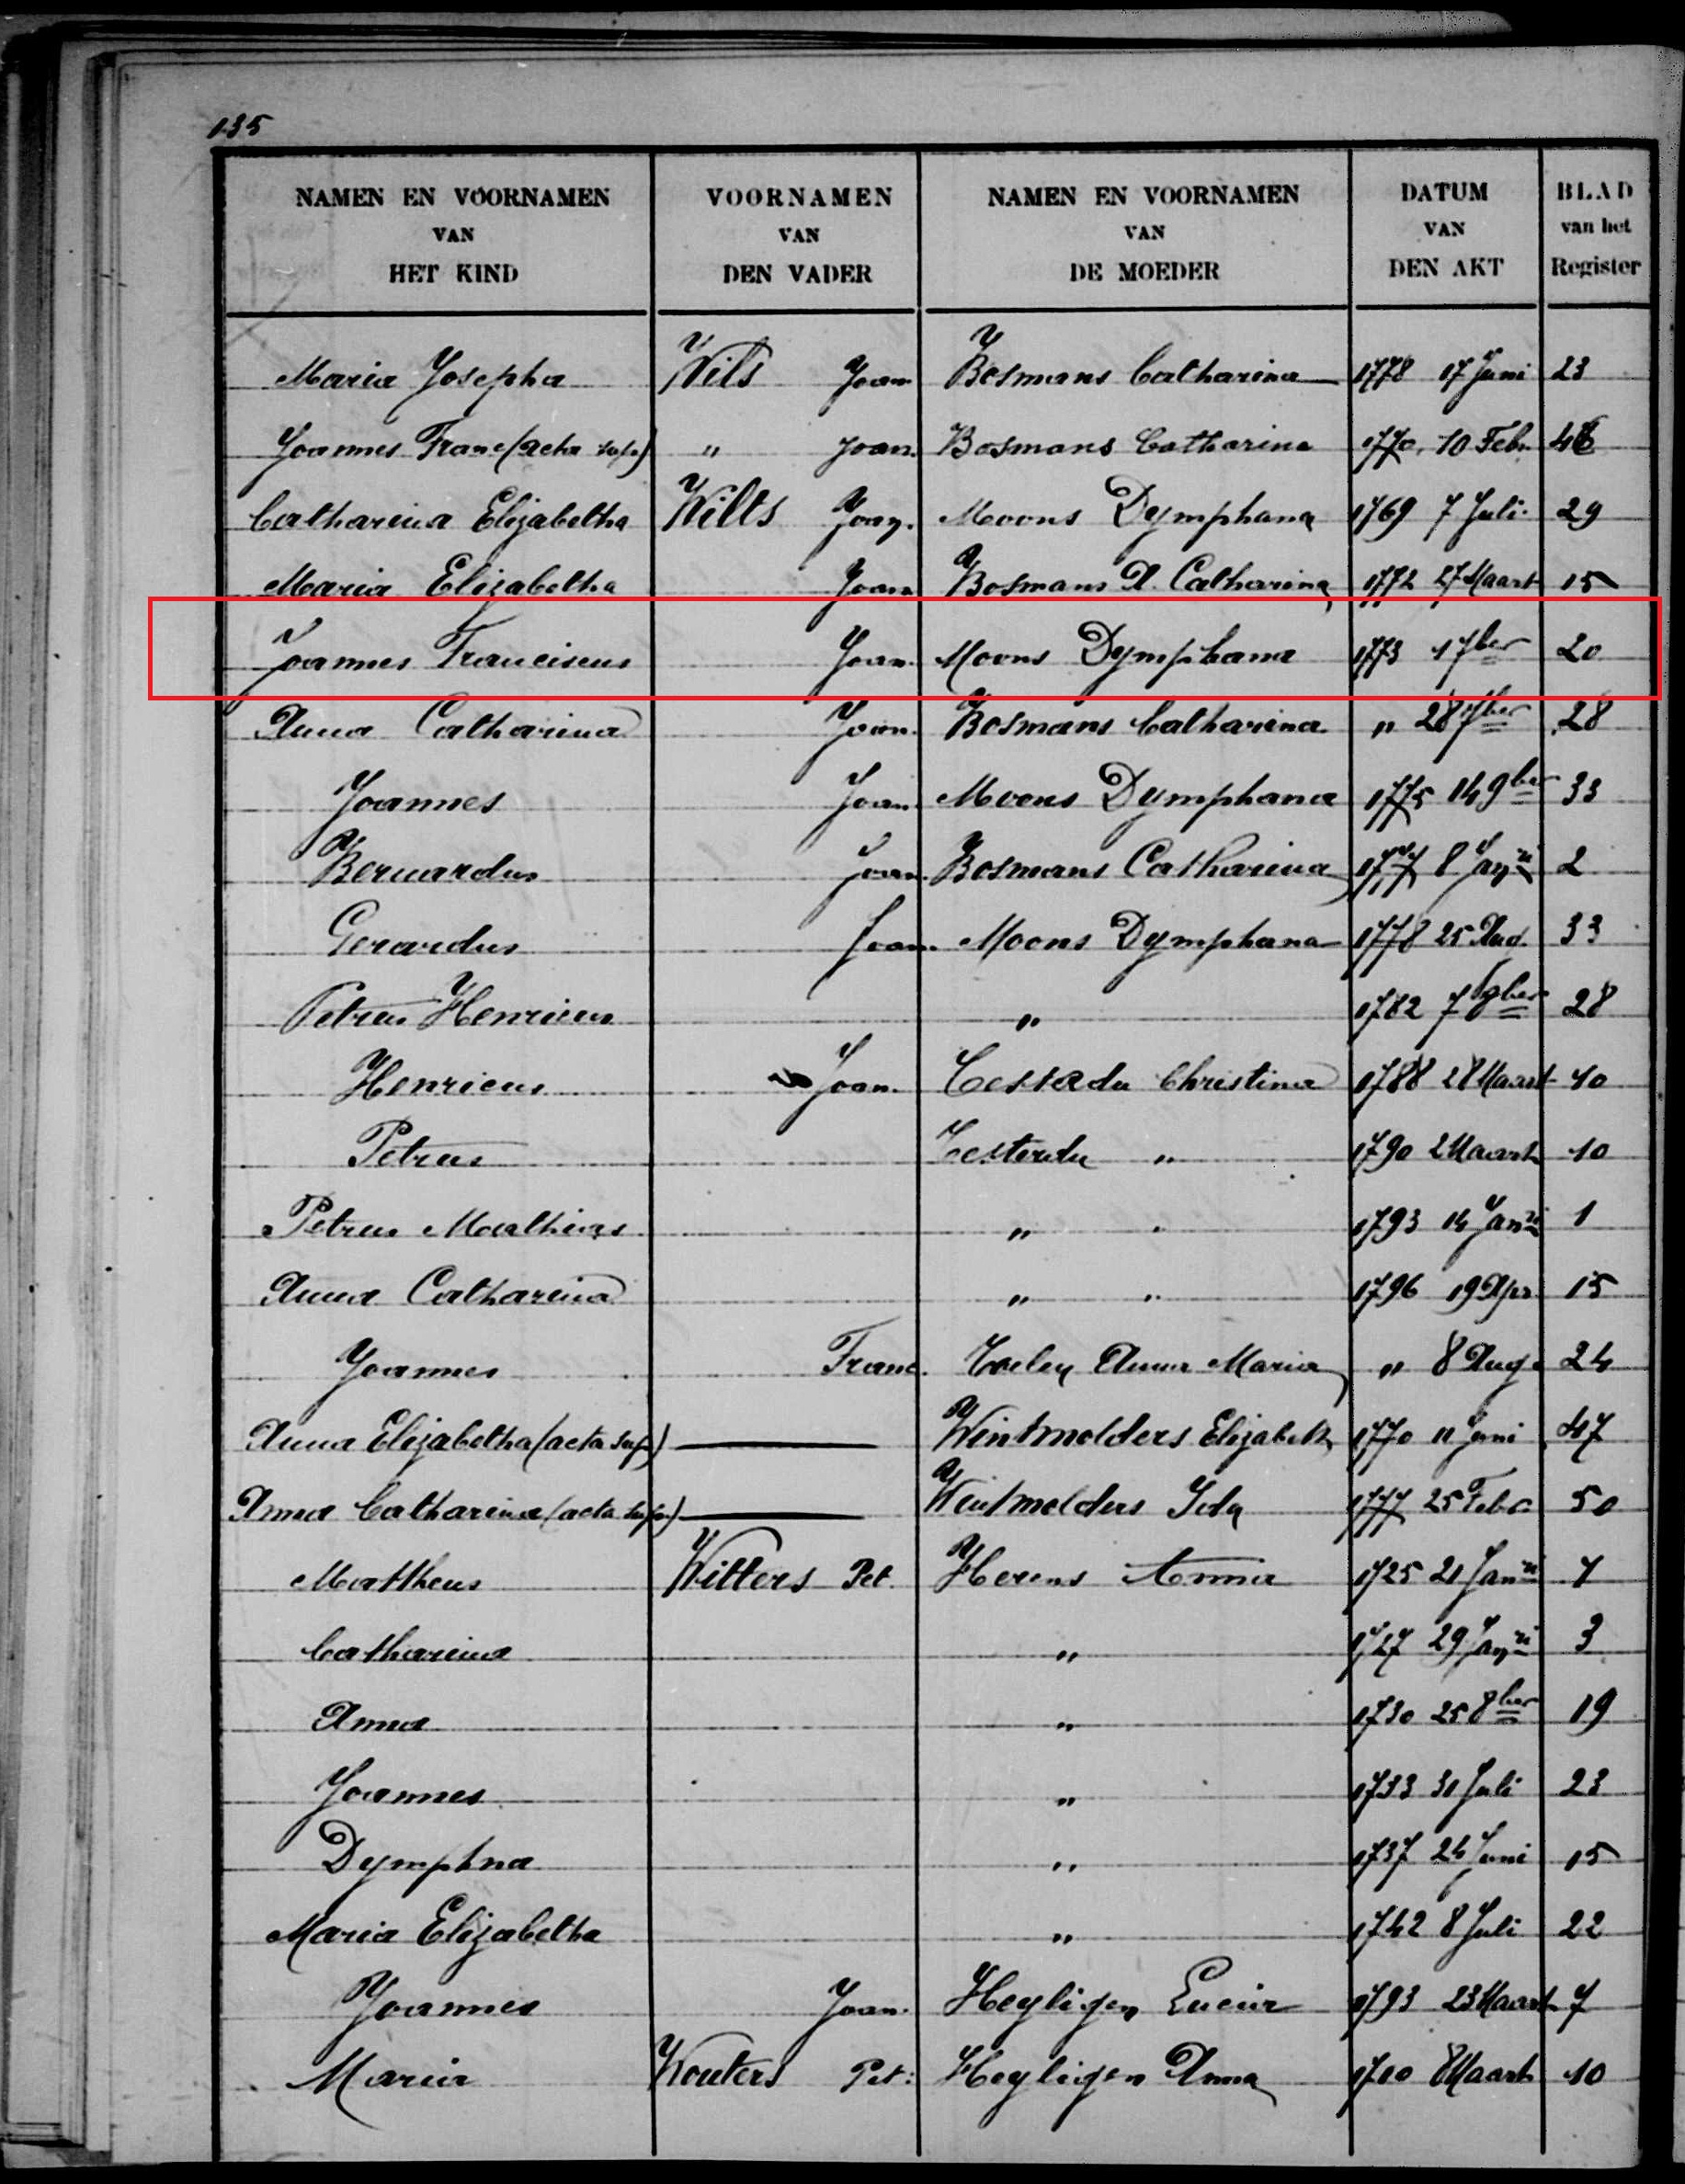 135
NAMEN EN VOORNAMEN VAN HET KIND | VOORNAMEN VAN DEN VADER | NAMEN EN VOORNAMEN VAN DE MOEDER | DATUM VAN DEN AKT | BLAD van het Register
Maria Josepha Wils Joan Bosmans Catharina 1778 17 Juni 23
Joannes Franc (acta sup.) " Joan. Bosmans Catharina 1770 10 Feb.
Catharina Elizabetha Wilts Joan. Moons Dymphana 1769 7 Juli 29
Maria Elizabetha Joan Bosmans A. Catharina 1772 27 Maart 15
Joannes Franciscus Joan. Moons Dymphana 1773 1 7ber 20
Anna Catharina Joan. Bosmans Catharina " 28 7ber 28
Joannes Joan. Moons Dymphana 1775 14 9ber 33
Bernardus Joan. Bosmans Catharina 1777 8 Janri 2
Gerardus Joan. Moons Dymphana 1778 25 Aug. 33
Petrus Henricus " 1782 7 9ber 28
Henricus Joan. Christina 1788 28 Maart 10
Petrus " 1790 2 Maart 10
Petrus Mathias " " 1793 14 Janri 1
Anna Catharina " " 1796 19 Apr 15
Joannes Franc. Anna Maria " 8 Aug. 24
Anna Elizabetha (acta sup.) Wintmolders Elizabeth 1770 11 Juni 47
Anna Catharina (acta sup.) Wintmolders Ida 1777 25 Feb. 50
Mattheus Witters Pet. Herens Anna 1725 21 Janri 7
Catharina " 1727 29 Janri 3
Anna " 1730 25 8ber 19
Joannes " 1733 31 Juli 23
Dymphna " 1737 24 Juni 15
Maria Elizabetha " 1742 8 Juli 22
Joannes Joan. Heyligen Lucia 1793 23 Maart 7
Maria Wouters Pet: Heyligen Anna 1710 8 Maart 10